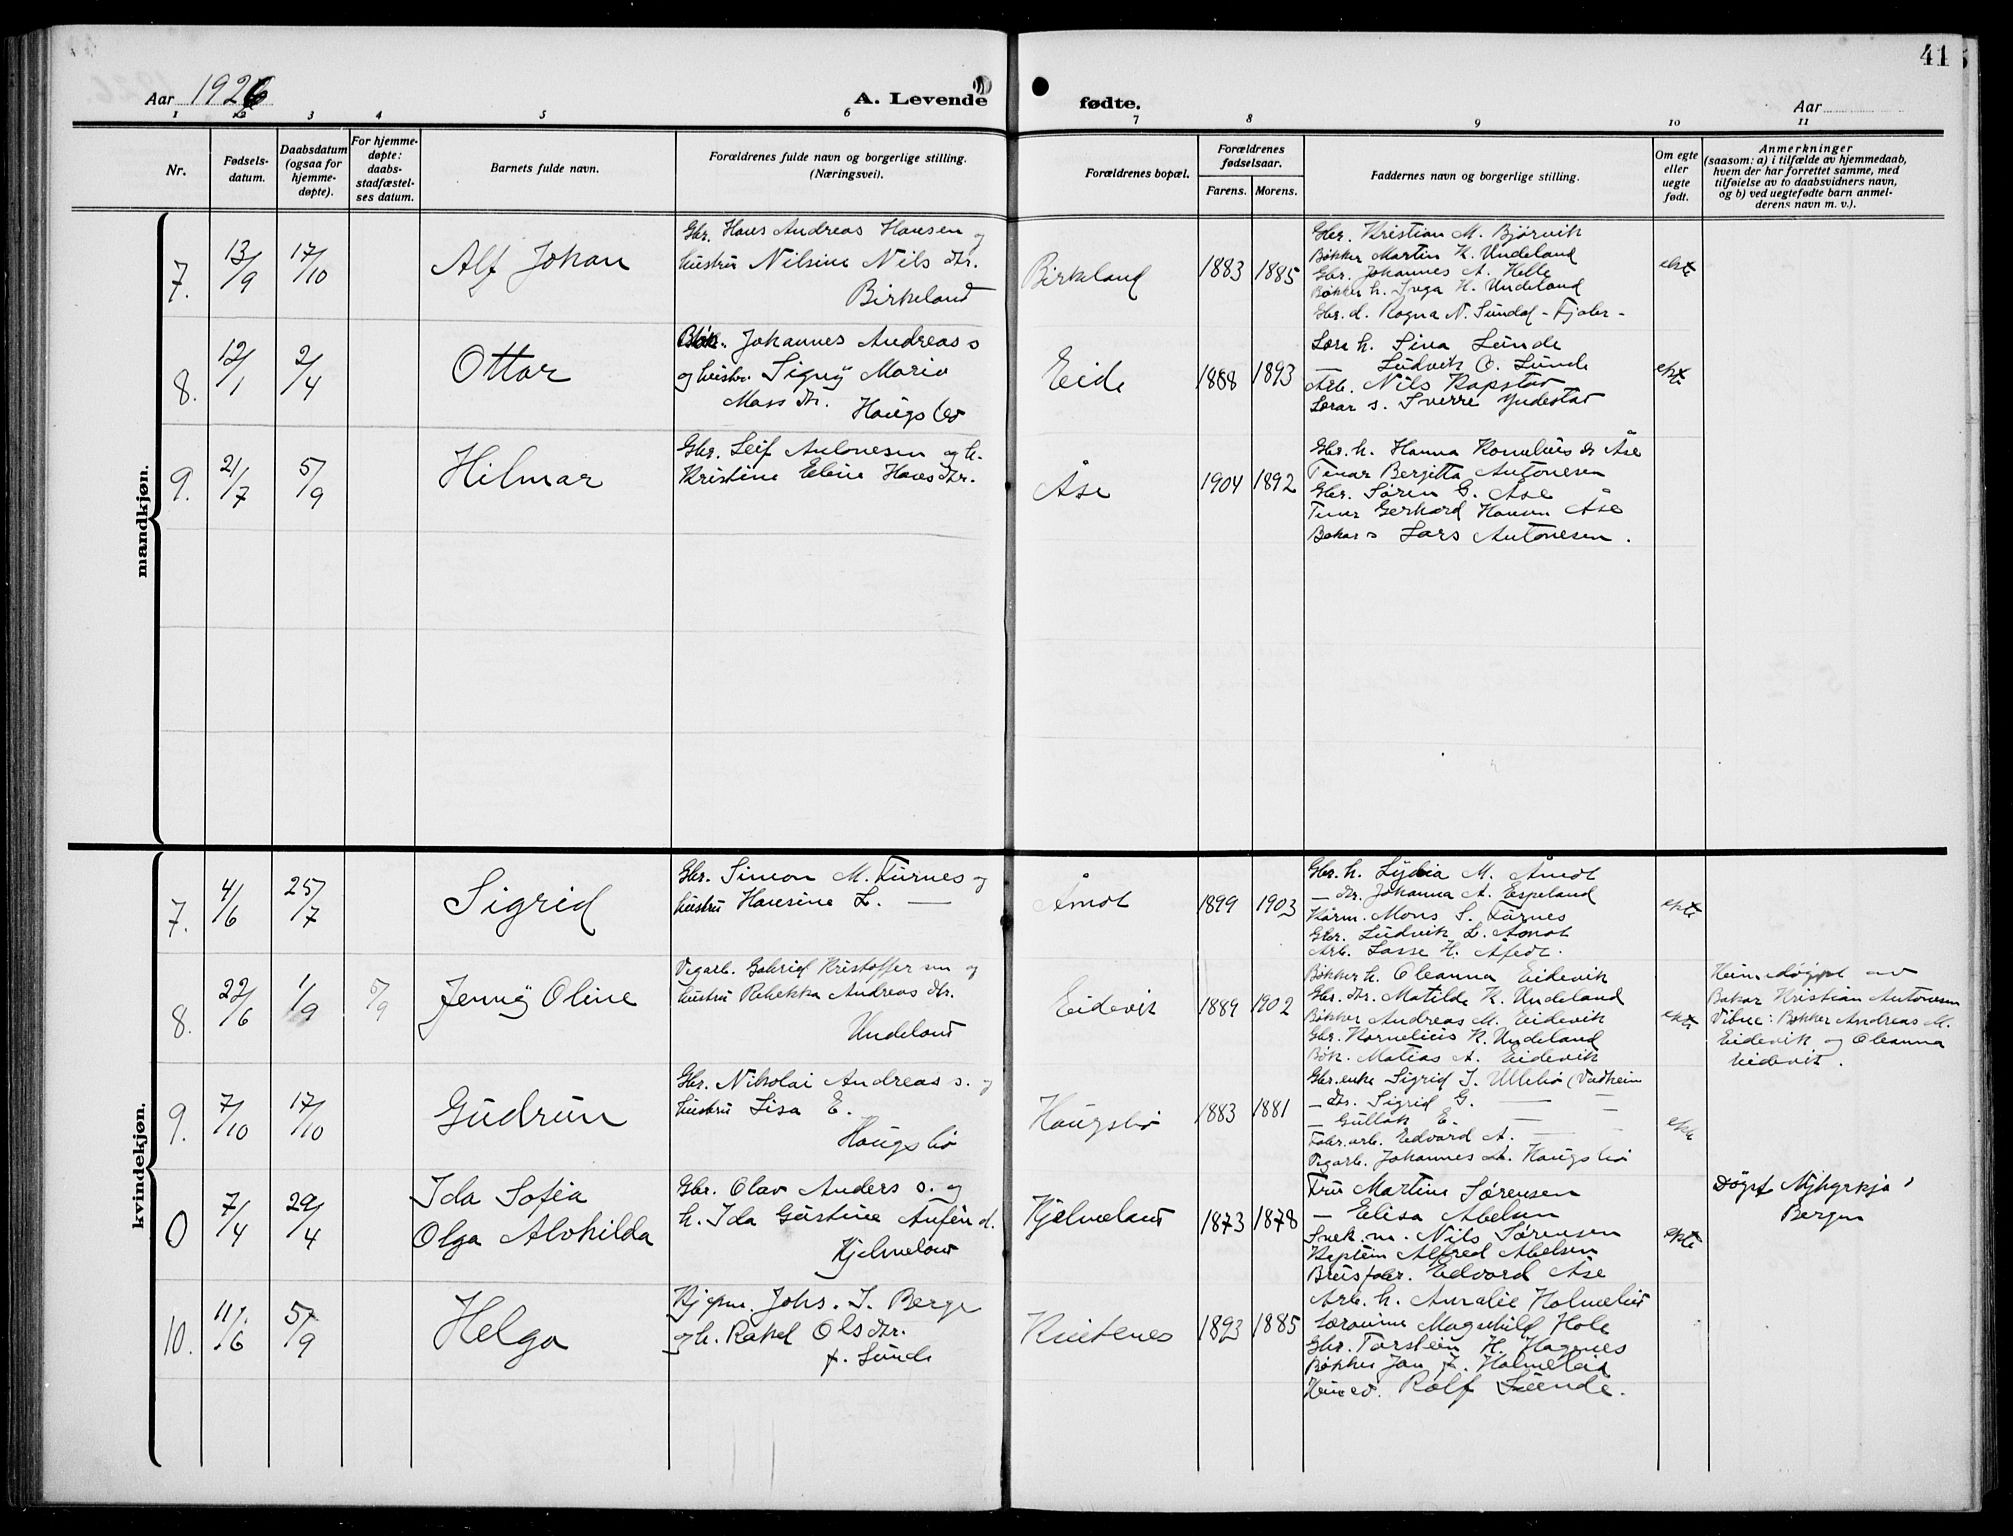 41
Aar 1926
A. Levende fødte.
Aar
1 2 3 4 5 6 7 8 9 10 11
Nr.
Fødsels-
datum.
Daabsdatum
(ogsaa for
hjemme-
døpte).
For hjemme-
døpte:
daabs-
stadfæstel-
ses datum.
Barnets fulde navn.
Forældrenes fulde navn og borgerlige stilling.
(Næringsvei).
Forældrenes bopæl.
Forældrenes
fødselsaar.
Farens. Morens.
Faddernes navn og borgerlige stilling.
Om egte
eller
uegte
født.
Anmerkninger
(saasom: a) i tilfælde av hjemmedaab,
hvem der har forrettet samme, med
tilføielse av to daabsvidners navn,
og b) ved uegtefødte barn anmel-
derens navn m. v.).
mandkjøn.
7. 13/9 17/10 Alf Johan
Gbr. Hans Andreas Hansen og
hustru Nilsine Nils dtr.
Birkeland
Birkeland 1883 1885
Gbr. Kristian M. Bjørvik
Bøkker Martin K. Undeland
Gbr. Johannes A. Helle
Bøkker h. Inga H. Undeland
Gbr. d. Ragna N. Sundal - Fjaler -
ekte
8. 12/1 2/4 Ottar
Johannes Andreas s
og hustru Signy Marie
Mass dtr. Haugsbø
Eide 1888 1893
Lærar h. Sina Sunde
— Ludvik O. Sunde
Arb. Nils Rapstad
Lærar s. Sverre Yndestad
ekte
9. 21/7 5/9 Hilmar
Gbr. Leif Antonesen og h.
Kristine Eline Hans dtr.
Åse 1904 1892
Gbr. h. Hanna Kornelius dr Åse
Tenar Bergitta Antonesen
Gbr. Søren G. Åse
Tenar Gerhard Hansen Åse
Bakar s Lars Antonesen.
kvindekjøn.
7. 4/6 25/7 Sigrid
Gbr. Simon M. Furnes og
hustru Hansine L. —
Åmot 1899 1903
Gbr. h. Lydia M. Åmot
— dr. Johanna A. Espeland
Mons S. Furnes
Gbr. Ludvik L. Åmot
Arb. Lasse H.
ekte
8. 22/6 1/9 5/9 Jenny Oline
Vegarb. Gabriel Kristoffer sen og
hustru Rebekka Andreas dtr.
Undeland
Eidevik 1889 1902
Bøkker h. Oleanna Eidevik
Gbr. dtr. Matilde K. Undeland
Bøkker Andreas M. Eidevik
Gbr. Kornelius K. Undeland
Bøk. Matias A. Eidevik
ekte
Heimedøypt av
Bakar Kristian Antonesen
Vitne: Bøkker Andreas M.
Eidevik og Oleanna
Eidevik.
9. 7/10 17/10 Gudrun
Gbr. Nikolai Andreas s. og
hustru Lisa E.
Haugsbø
Haugsbø 1883 1881
Gbr. enke Sigrid J. Ullebø (Vadheim
— dtr. Sigrid G. — —
— Gullak E. — —
Fabr. arb. Edvard A. — —
Vegarb. Johannes A. Haugsbø
ekte
0 7/4 29/4 Ida Sofia
Olga Alvhilda
Gbr. Olav Anders s. og
h. Ida Gustine Anfin d.
Hjelmeland
Hjelmeland 1873 1878
Fru Martine Sørensen
— Elisa Abelsen
Nils Sørensen
Kaptein Alfred Abelsen
Brusfabr. Edvard Åse
ekte
Døypt Nykyrkja
Bergen
10. 11/6 5/9 Helga
Kjøpm. Johs. I. Berge
og h. Rakel Ols dtr.
f. Sunde
1893 1885
Arb. h. Amalie Holmelid
Magnhild Hole
Gbr. Torstein H. Hagenes
Bøkker Jan J. Holmelid
Rolf Sunde.